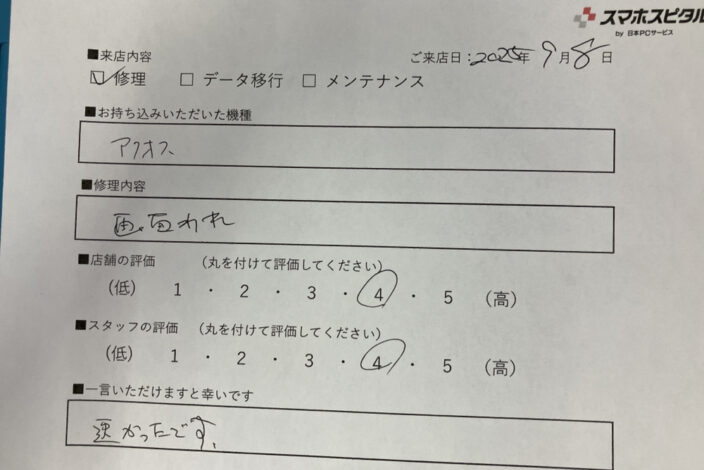 スマホスピタル
by 日本PCサービス
■来店内容
ご来店日：2025年 9月 8日
☑ 修理 □ データ移行 □ メンテナンス
■お持ち込みいただいた機種
アクオス
■修理内容
画面われ
■店舗の評価 （丸を付けて評価してください）
（低） 1 ・ 2 ・ 3 ・ 4 ・ 5 （高）
■スタッフの評価 （丸を付けて評価してください）
（低） 1 ・ 2 ・ 3 ・ 4 ・ 5 （高）
■一言いただけますと幸いです
速かったです、